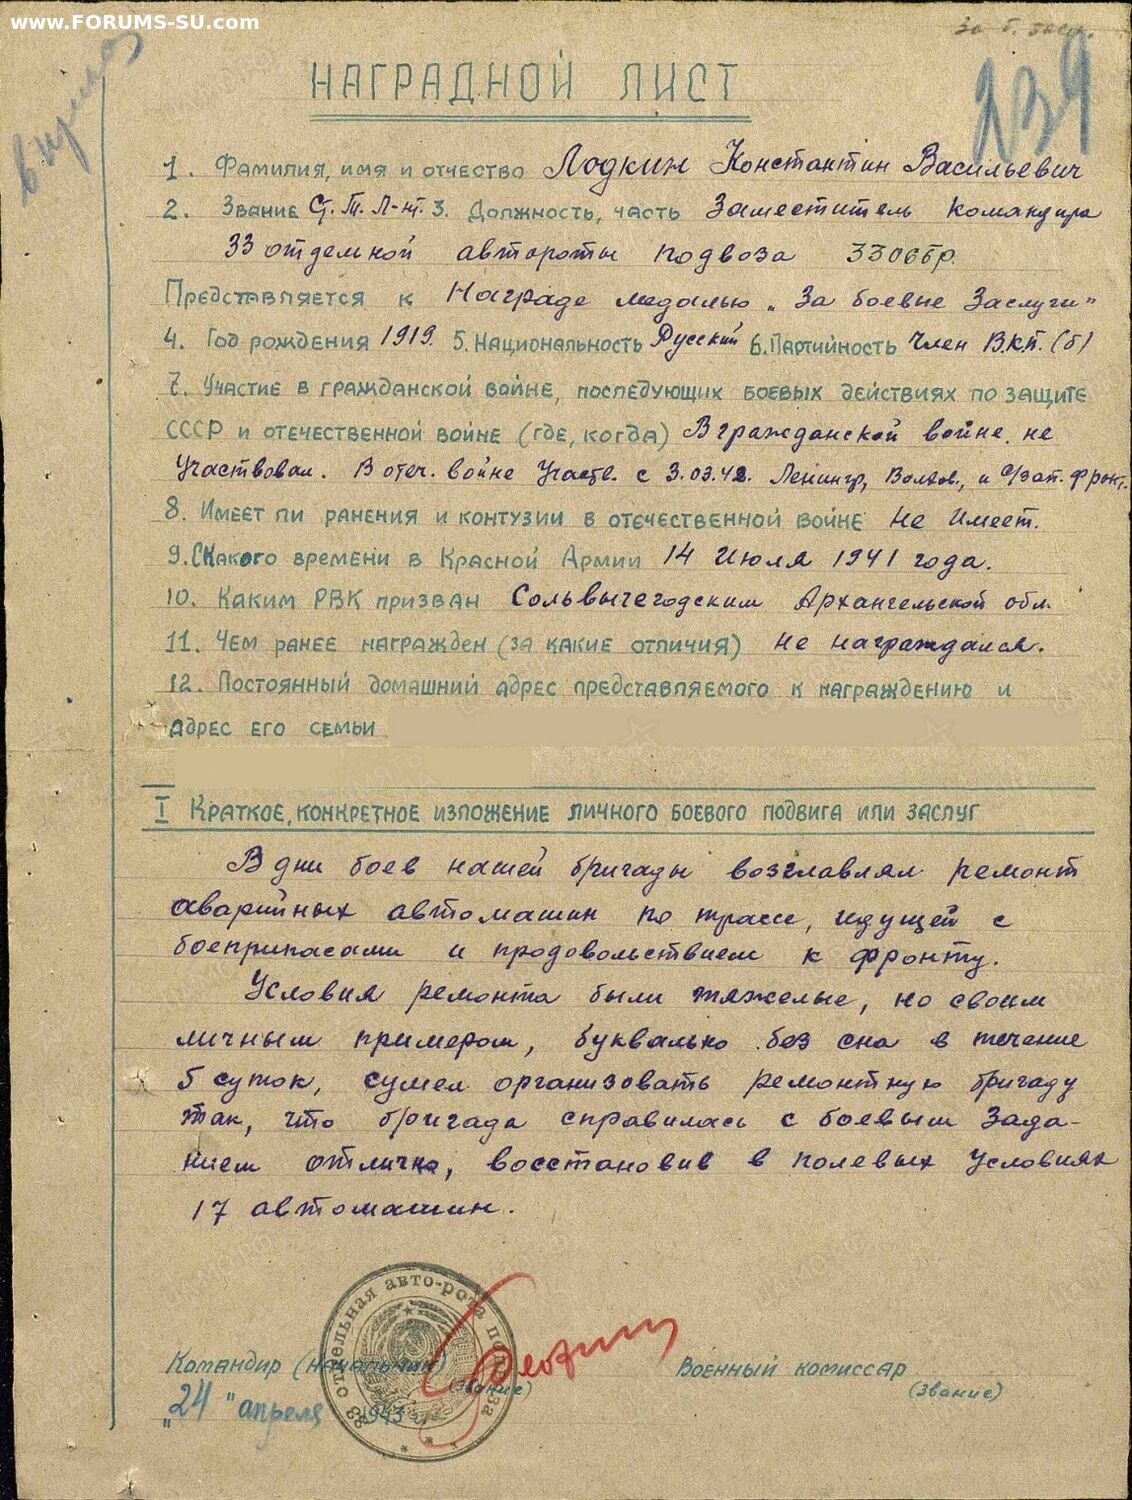 www.FORUMS-SU.com
За б. засл.
239
НАГРАДНОЙ ЛИСТ
1. Фамилия, имя и отчество Лодкин Константин Васильевич
2. Звание Ст. Т. Л-нт. 3. Должность, часть Заместитель командира
33 отдельной автороты подвоза 33 ОСБР.
Представляется к Награде медалью „За боевые Заслуги"
4. Год рождения 1919. 5. Национальность Русский 6. Партийность Член В.К.П.(б)
7. Участие в гражданской войне, последующих боевых действиях по защите
СССР и отечественной войне (где, когда) В гражданской войне не
Участвовал. В отеч. войне Участв. с 3.03.42. Ленингр, Волхов., и С/зап. фронт.
8. Имеет ли ранения и контузии в отечественной войне Не Имеет.
9. С какого времени в Красной Армии 14 Июля 1941 года.
10. Каким РВК призван Сольвычегодским Архангельской обл.
11. Чем ранее награжден (за какие отличия) не награждался.
12. Постоянный домашний адрес представляемого к награждению и
адрес его семьи
I Краткое, конкретное изложение личного боевого подвига или заслуг
В дни боев нашей бригады возглавлял ремонт
аварийных автомашин по трассе, идущей с
боеприпасами и продовольствием к фронту.
Условия ремонта были тяжелые, но своим
личным примером, буквально без сна в течение
5 суток, сумел организовать ремонтную бригаду
так, что бригада справилась с боевым зада-
нием отлично, восстановив в полевых условиях
17 автомашин.
33 отдельная авто-рота подвоза
Командир (начальник) Военный комиссар
(звание) (звание)
„24" апреля 1943 г.